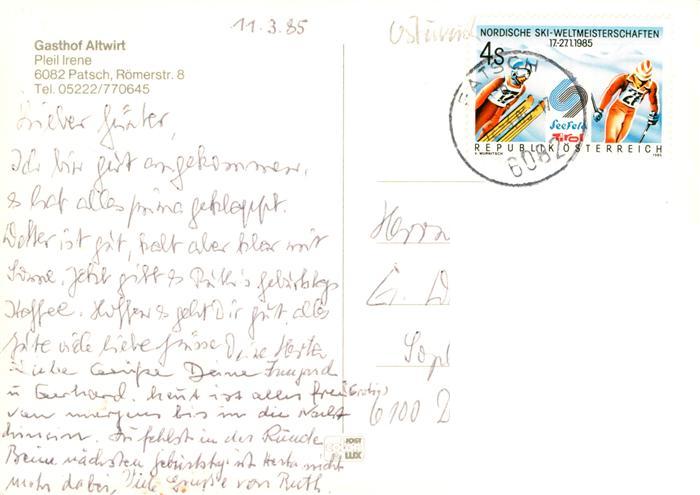 11.3.85
Gasthof Altwirt
Pleil Irene
6082 Patsch, Römerstr. 8
Tel. 05222/770645
Lieber Günter,
Ich bin gut angekommen,
es hat alles prima geklappt.
Wetter ist gut, kalt aber klar mit
Sonne. Jetzt gibt es Ruth's Geburtstags
Kaffee. Hoffe es geht Dir gut, alles
gute viele liebe Grüsse Deine Herta
Liebe Grüße Deine Irmgard
u Gerhard. heut ist alles frei (Gratis)
von morgens bis in die Nacht
hinein. Du fehlst in der Runde
Beim nächsten Geburtstag ist Herta nicht
mehr dabei, Viele Grüße von Ruth.
NORDISCHE SKI-WELTMEISTERSCHAFTEN
17-27.1.1985
4S
Seefeld
Tirol
REPUBLIK ÖSTERREICH
1985
PATSCH
6082
Herrn
G.
6100
JOST
LUX